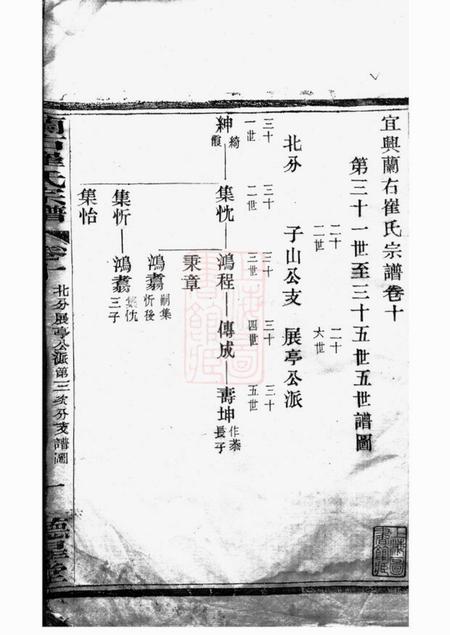 宜興蘭右崔氏宗譜卷十
第三十一世至三十五世五世譜圖
北分
二十二世
子山公支
二十六世
展亭公派
三十一世
三十二世
三十三世
三十四世
三十五世
紳 綺霞
集忱
鴻程
傳成
壽坤 作棻長子
秉章
鴻翥 嗣集忻後
集忻
鴻翥 集忱三子
集怡
蘭右崔氏宗譜
卷十
北分展亭公派第三次分支譜圖
一
德星堂
上海圖書館藏